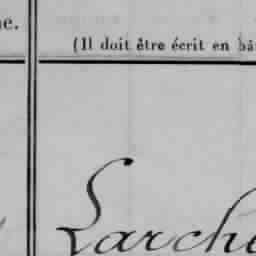 (Il doit être écrit en
Larch